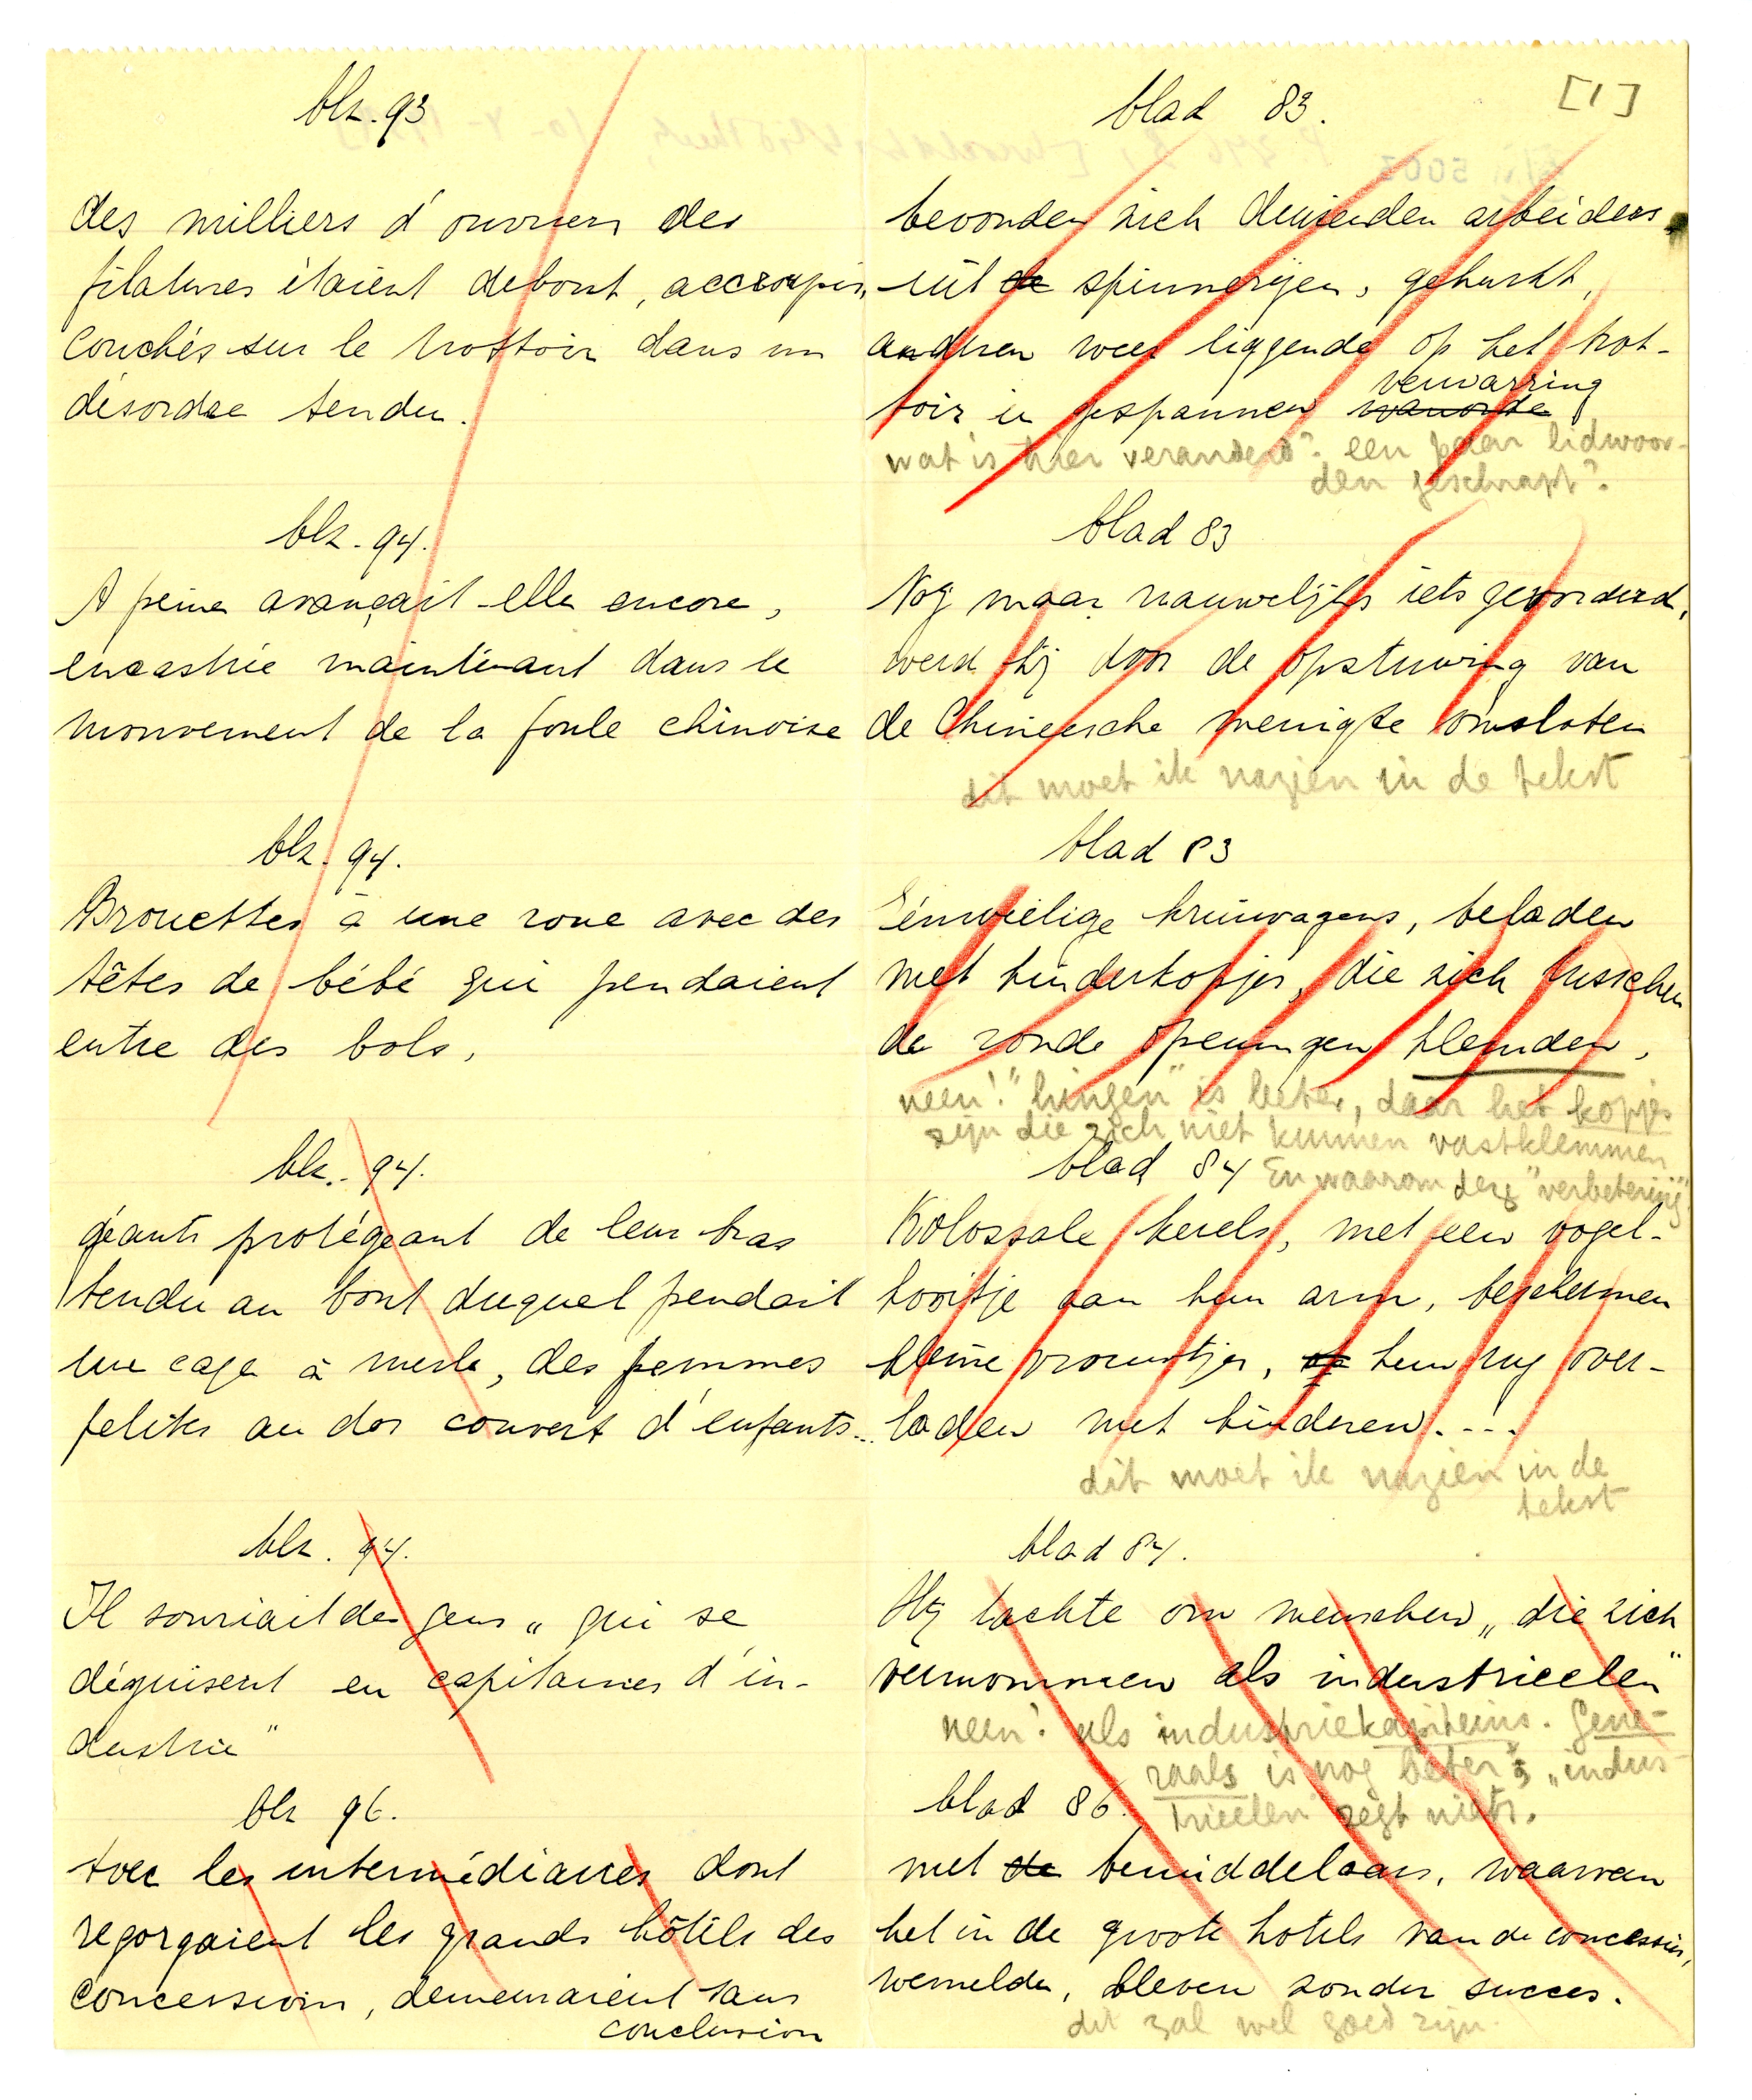 blz. 93
des milliers d'ouvriers des
filatures étaient debout, accroupis,
couchés sur le trottoir dans un
désordre tendu.
blz. 94.
A peine avançait-elle encore,
encastrée maintenant dans le
mouvement de la foule chinoise
blz. 94.
Brouettes à une roue avec des
têtes de bébé qui pendaient
entre des bols,
blz. 94.
géants protégeant de leur bras
tendu au bout duquel pendait
une cage à merle, des femmes
petites au dos couvert d'enfants...
blz. 94.
Il souriait des gens „ qui se
déguisent en capitaines d'in-
dustrie"
blz 96.
Avec les intermédiaires dont
regorgaient les grands hôtels des
concessions, demeuraient sans
conclusion
[1]
blad 83.
bevonden zich duizenden arbeiders
uit de spinnerijen, gehurkt,
anderen weer liggende op het trot-
verwarring
toir in gespannen wanorde
wat is hier veranderd? een paar lidwoor-
den geschrapt?
blad 83
Nog maar nauwelijks iets gevorderd,
werd hij door de opstuwing van
de Chineesche menigte omsloten
dit moet ik nazien in de tekst
blad 83
Eénwielige kruiwagens, beladen
met kinderkopjes, die zich tusschen
de ronde openingen klemden,
neen! "hingen" is beter, daar het kopjes
zijn die zich niet kunnen vastklemmen
En waarom deze "verbetering"
blad 84
Kolossale kerels, met een vogel-
kooitje aan hun arm, beschermen
kleine vrouwtjes, op hun rug over-
laden met kinderen....
dit moet ik nazien in de
tekst
blad 84.
Hij lachte om menschen „ die zich
vermommen als industrieelen"
neen! als industriekapiteins. Gene-
raals is nog beter; „indus-
trieelen" zegt niets.
blad 86.
met de bemiddelaars, waarvan
het in de groote hotels van de concessies,
wemelde, bleven zonder succes.
dit zal wel goed zijn.